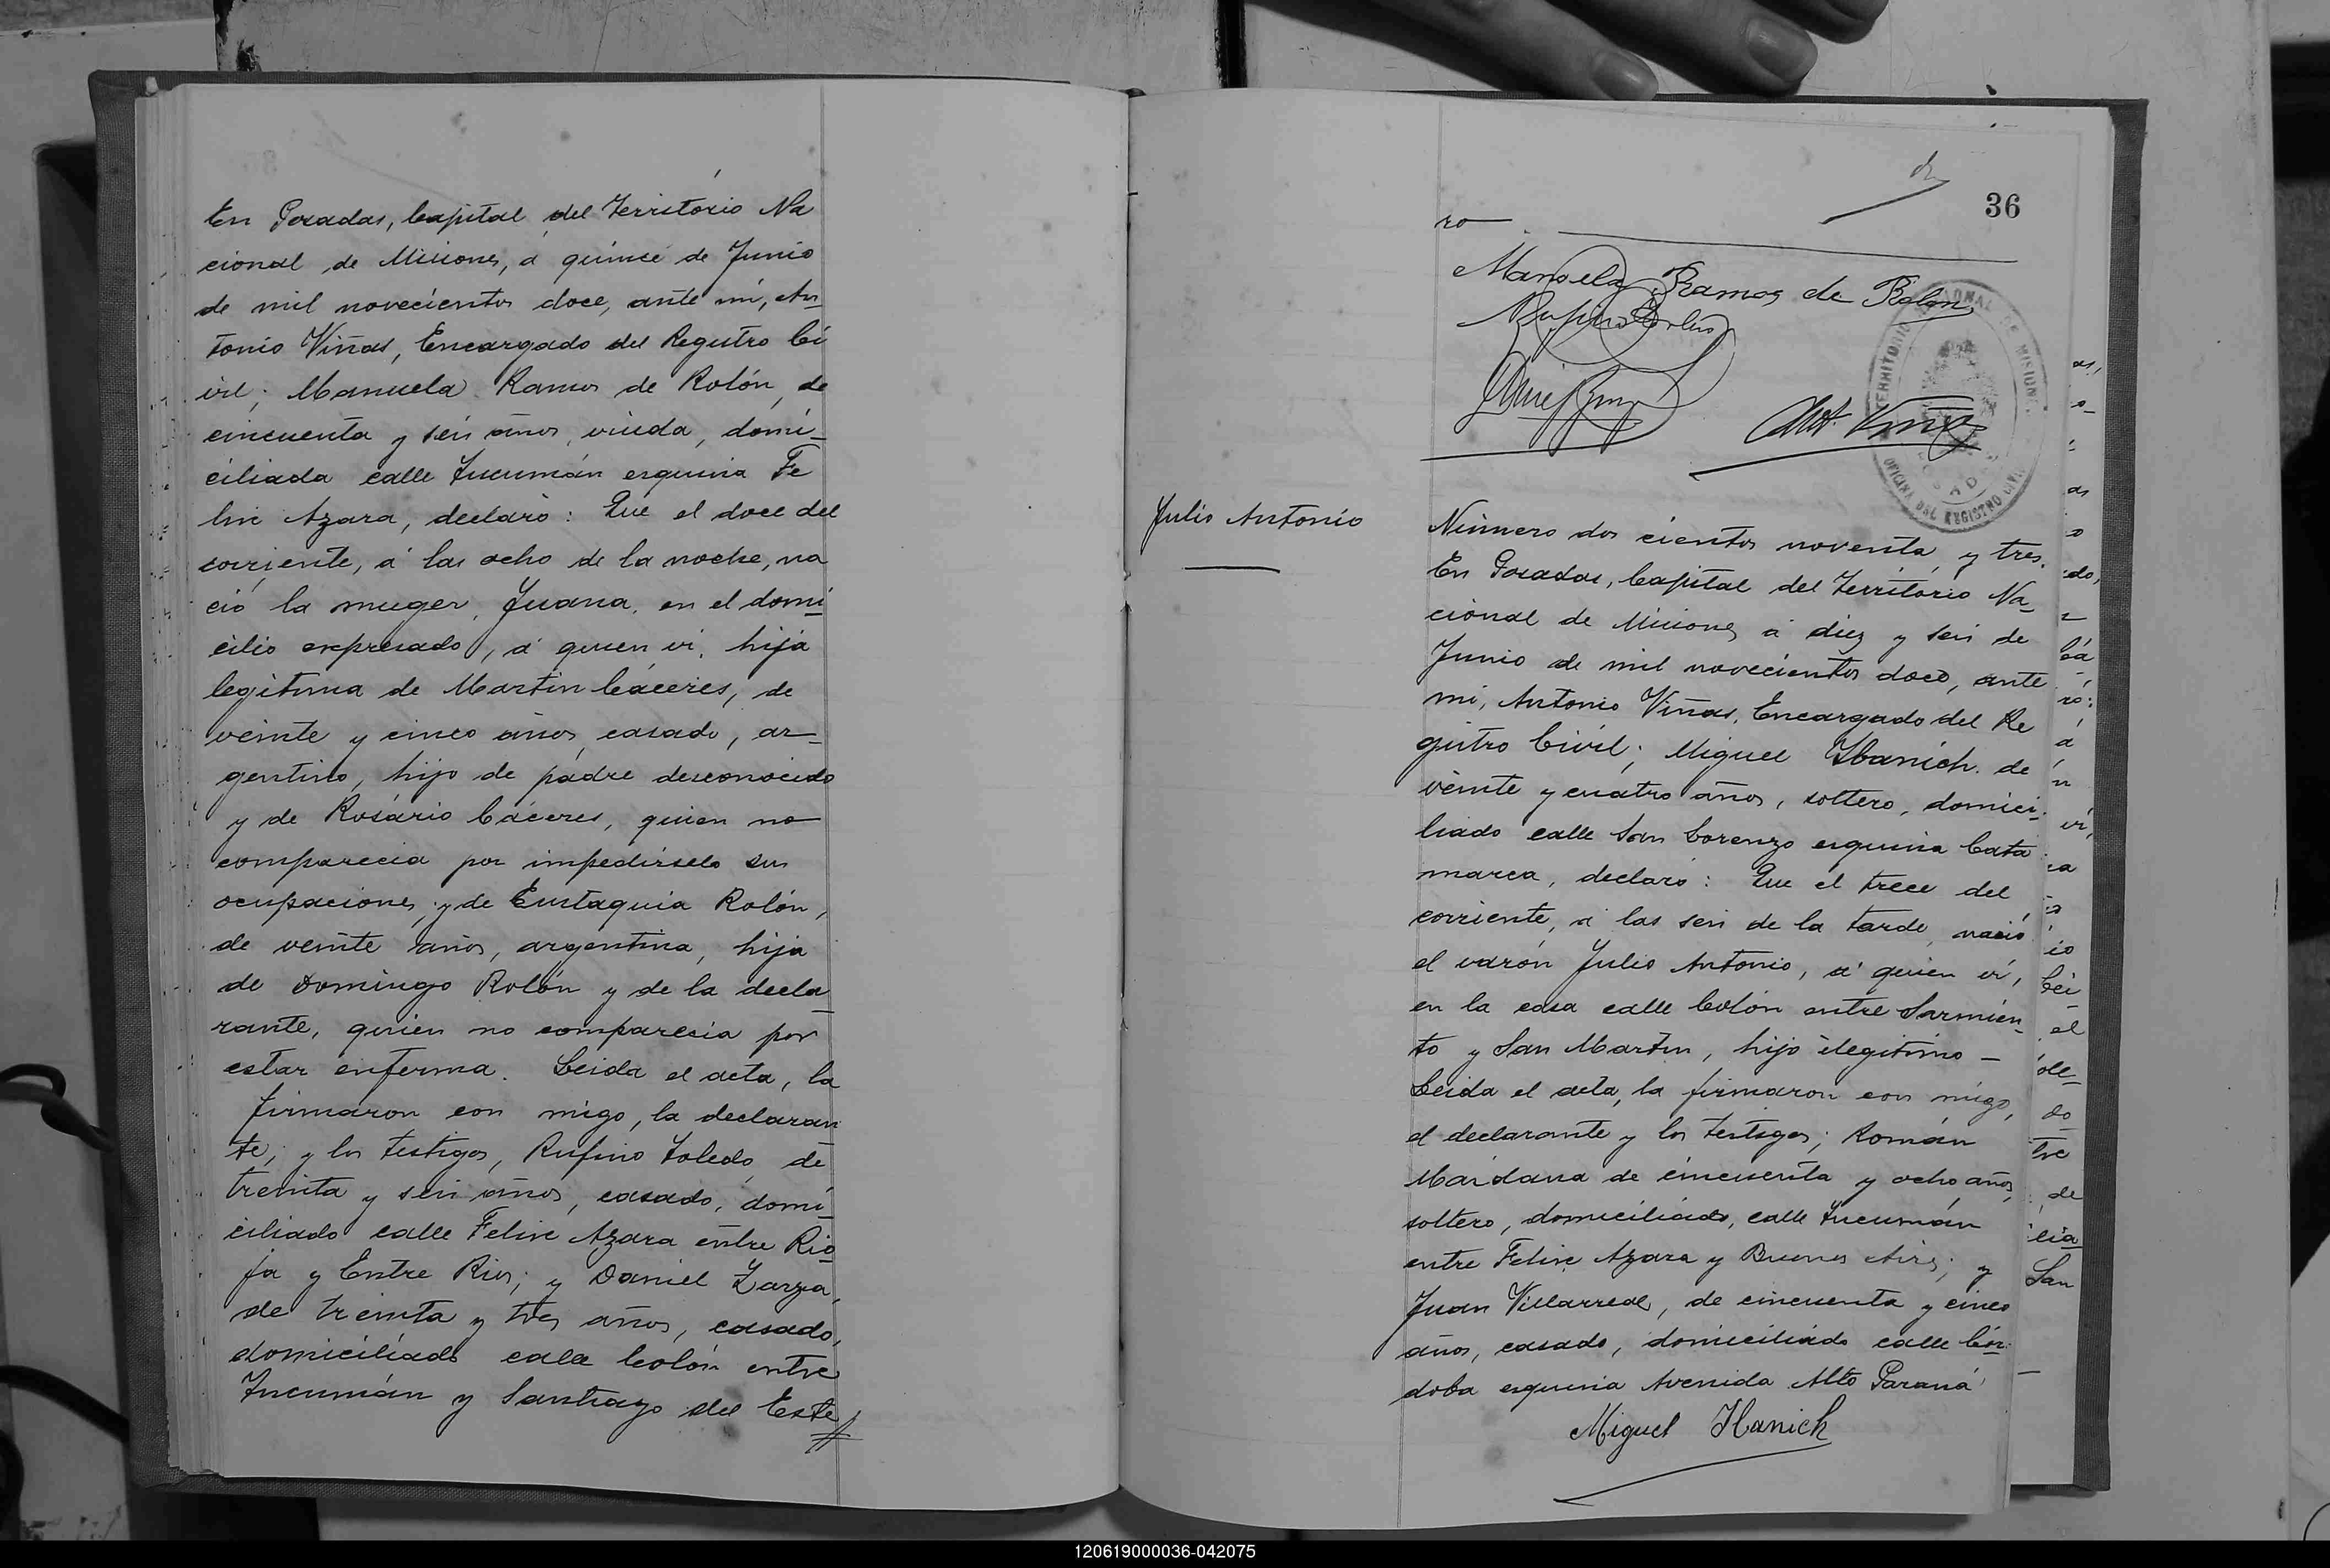 En Posadas, Capital del Territorio Na
cional de Misiones, á quince de Junio
de mil novecientos doce, ante mi, An-
tonio Viñas, Encargado del Registro Ci
vil; Manuela Ramos de Rolón, de
cincuenta y seis años, viuda, domi-
ciliada calle Tucumán esquina Fe
lix Azara, declaró: Que el doce del
corriente, á las ocho de la noche, na
ció la muger, Juana, en el domi
cilio expresado, á quien vi, hija
legítima de Martin Cáceres, de
veinte y cinco años, casado, ar-
gentino, hijo de padre desconocido
y de Rosário Cáceres, quien no
comparecia por impedirselo sus
ocupaciones, y de Eustaquia Rolón,
de veinte años, argentina, hija
de Domingo Rolón y de la decla
rante, quien no comparecia por
estar enferma. Leida el acta, la
firmaron con migo, la declaran
te, y los testigos, Rufino Toledo, de
treinta y seis años, casado, domi
ciliado calle Felix Azara entre Rio
ja y Entre Rios; y Daniel Zarza,
de treinta y tres años, casado,
domiciliado calle Colón entre
Tucumán y Santiago del Este
36
ro
Manuela Ramos de Rolon
Ant. Viñas
TERRITORIO NACIONAL DE MISIONES
OFICINA DEL REGISTRO CIVIL
Julio Antonio
Número dos cientos noventa y tres.
En Posadas, Capital del Territorio Na
cional de Misiones á diez y seis de
Junio de mil novecientos doce, ante
mi, Antonio Viñas, Encargado del Re
gistro Civil; Miguel de
veinte y cuatro años, soltero, domici-
liado calle San Lorenzo esquina Cata
marca, declaró: Que el trece del
corriente, á las seis de la tarde, nació
el varón Julio Antonio, á quien vi,
en la casa calle Colón entre Sarmien-
to y San Martin, hijo ilegitimo —
Leida el acta, la firmaron con migo,
el declarante y los testigos; Román
Maidana de cincuenta y ocho años,
soltero, domiciliado, calle Tucumán
entre Felix Azara y Buenos Aires; y
Juan Villarreal, de cincuenta y cinco
años, casado, domiciliado calle Cór-
doba esquina Avenida Alto Paraná
Miguel Hanich
120619000036-042075